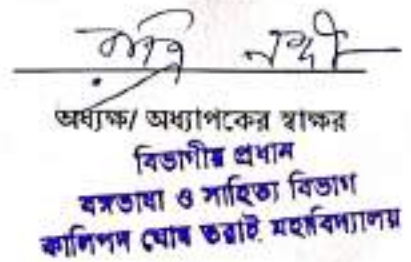 নন্দী
অধ্যক্ষ/ অধ্যাপকের স্বাক্ষর
বিভাগীয় প্রধান
বঙ্গভাষা ও সাহিত্য বিভাগ
কালিপদ ঘোষ তরাই মহাবিদ্যালয়